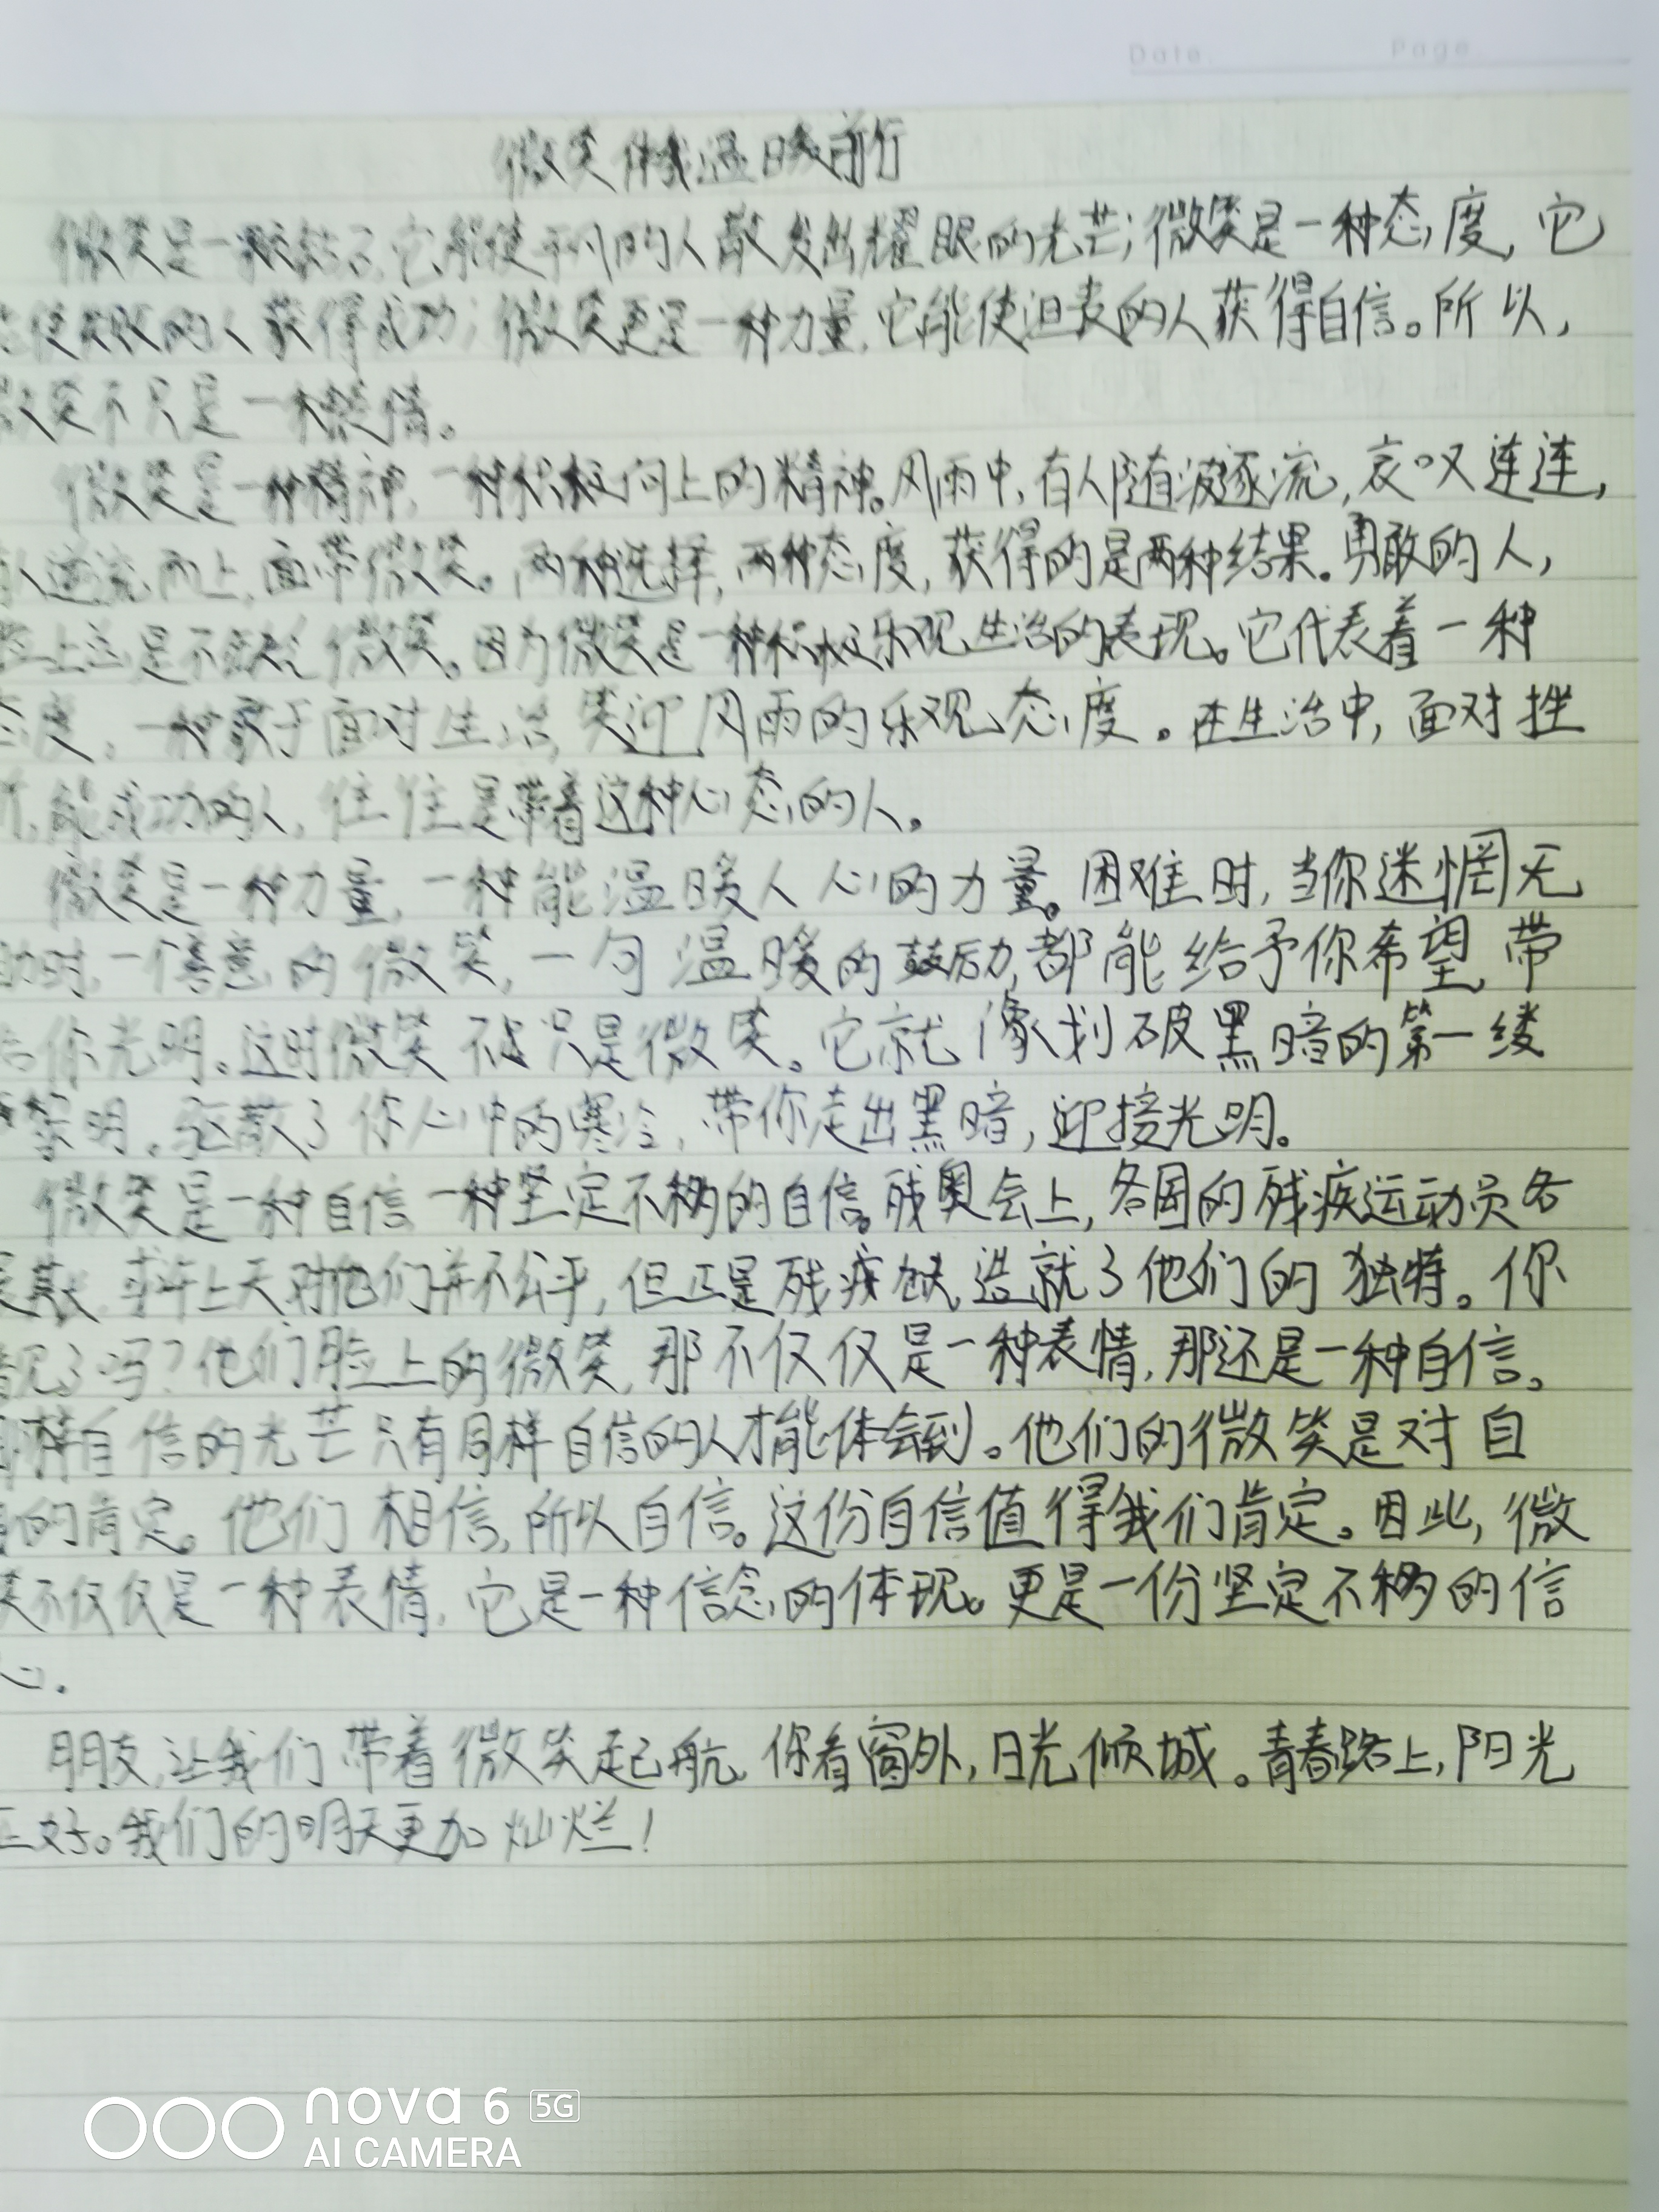 Date. Page.
微笑伴我温暖前行
微笑是一颗钻石,它能使平凡的人散发出耀眼的光芒;微笑是一种态度,它
使失败的人获得成功;微笑更是一种力量,它能使沮丧的人获得自信。所以,
笑不只是一种表情。
微笑是一种精神,一种积极向上的精神。风雨中,有人随波逐流,哀叹连连,
人逆流而上,面带微笑。两种选择,两种态度,获得的是两种结果。勇敢的人,
脸上总是不缺乏微笑。因为微笑是一种积极乐观生活的表现。它代表着一种
态度,一种敢于面对生活,笑迎风雨的乐观态度。在生活中,面对挫
折,能成功的人,往往是带着这种心态的人。
微笑是一种力量,一种能温暖人心的力量。困难时,当你迷惘无
助时,一个善意的微笑,一句温暖的鼓励,都能给予你希望,带
给你光明。这时微笑不只是微笑。它就像划破黑暗的第一缕
黎明。驱散了你心中的寒冷,带你走出黑暗,迎接光明。
微笑是一种自信,一种坚定不移的自信。残奥会上,各国的残疾运动员各
展,或许上天对他们并不公平,但正是残疾,造就了他们的独特。你
看见了吗?他们脸上的微笑,那不仅仅是一种表情,那还是一种自信。
同样自信的光芒只有同样自信的人才能体会到。他们的微笑是对自
的肯定。他们相信,所以自信。这份自信值得我们肯定。因此,微
笑不仅仅是一种表情,它是一种信念的体现。更是一份坚定不移的信
心.
朋友,让我们带着微笑起航,你看窗外,日光倾城。青春路上,阳光
正好。我们的明天更加灿烂!
nova 6 5G
AI CAMERA